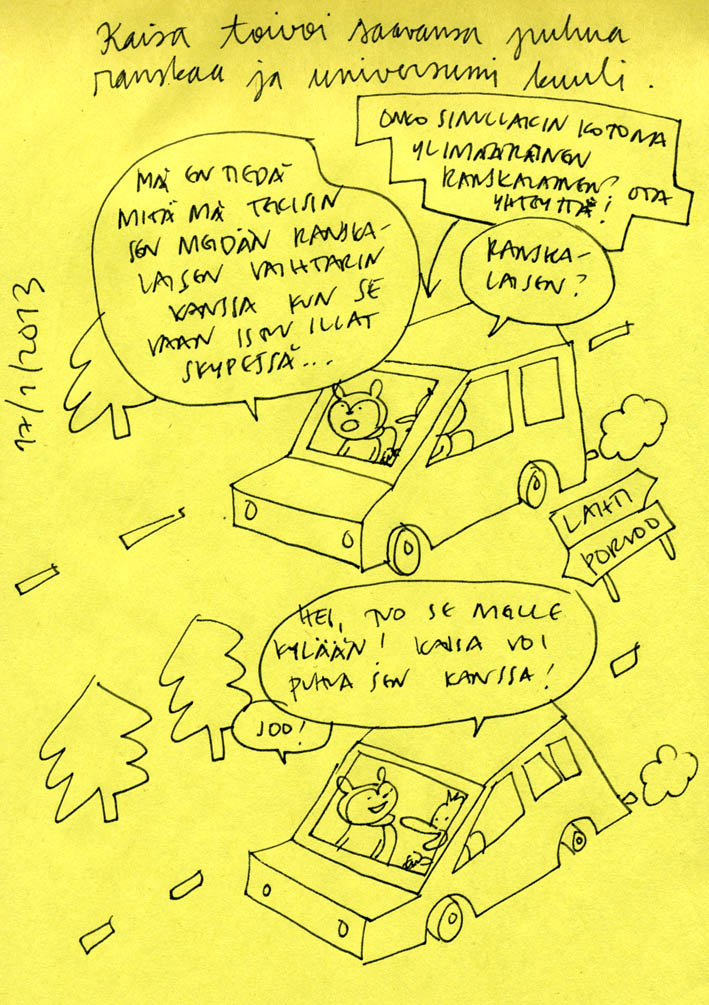 Kaisa toivoi saavansa puhua
ranskaa ja universumi kuuli.
ONKO SINULLAKIN KOTONA
YLIMÄÄRÄINEN
RANSKALAINEN? OTA
YHTEYTTÄ!
MÄ EN TIEDÄ
MITÄ MÄ TEKISIN
SEN MEIDÄN RANSKA-
LAISEN VAIHTARIN
KANSSA KUN SE
VAAN ISTUU ILLAT
SKYPESSÄ...
RANSKA-
LAISEN?
17/1/2013
LAHTI
PORVOO
HEI, TUO SE MEILLE
KYLÄÄN! KAISA VOI
PUHUA SEN KANSSA!
JOO!